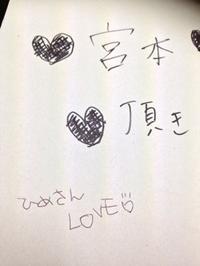 ♥ 宮本 ♥
♥ 頂き
ひめさん
LOVE♡